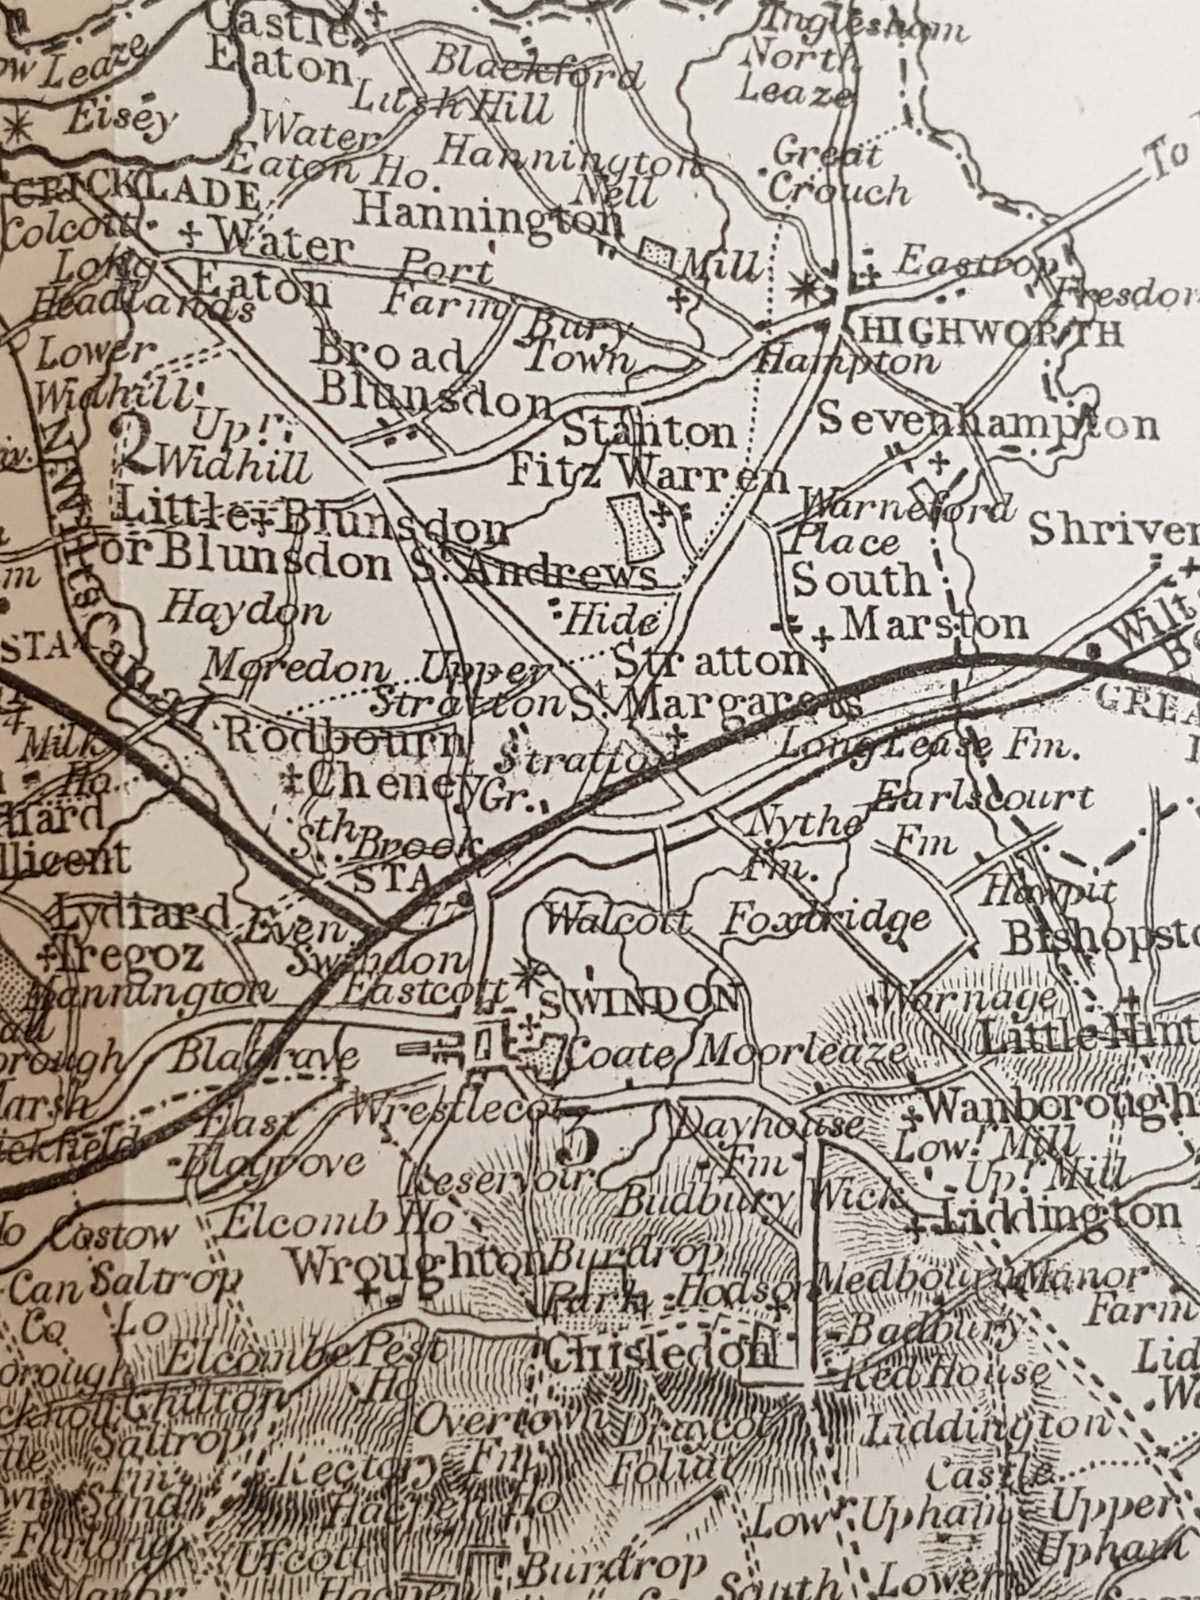 Castle
Eaton
Inglesham
North
Leaze
Leaze
Blackford
Lush Hill
Eisey
Water
Eaton Ho.
Hannington
Nell
Great
Crouch
To
CRICKLADE
Colcott
Water
Eaton
Hannington
Mill
Eastrop
Long
Headlands
Port
Farm
Fresdon
HIGHWORTH
Bury
Town
Lower
Widhill
Broad
Blunsdon
Hampton
Sevenhampton
2
Upr.
Widhill
Stanton
Fitz Warren
Little Blunsdon
or Blunsdon St. Andrews
Warneford
Place
Shriven
South
Marston
New
Wilts
Canal
Haydon
Hide
STA
Moredon
Upper
Stratton
Stratton
St. Margarets
Wilts
GREA
Milk
Ho.
Rodbourn
Cheney
Stratton
Gr.
Long Lease Fm.
Earlscourt
Fm
Nythe
Fm.
Sth. Brook
STA
77
Hawpit
Lydiard
Tregoz
Even
Swindon
Walcott
Foxbridge
Bishopsto
Mannington
Eastcott
SWINDON
Warnage
Little Hint
Blagrave
Coate
Moorleaze
Wanborough
East
Blagrove
Wrestlecot
5
Dayhouse
Fm
Lowr. Mill
Upr. Mill
Reservoir
Budbury
Wick
Liddington
Costow
Elcomb Ho
Can
Co
Saltrop
Lo
Wroughton
Burdrop
Park
Hodson
Medbourn
Manor
Farm
Badbury
Elcombe
Pest
Ho
Chisledon
Red House
Chilton
Overtown
Fm
Draycot
Foliat
Liddington
Castle
Saltrop
Fm
Rectory
Hacpen Ho
Sand
Furlong
Lowr. Upham
Upper
Upham
Ufcott
Burdrop
Manor
Hacpen
South
Lower